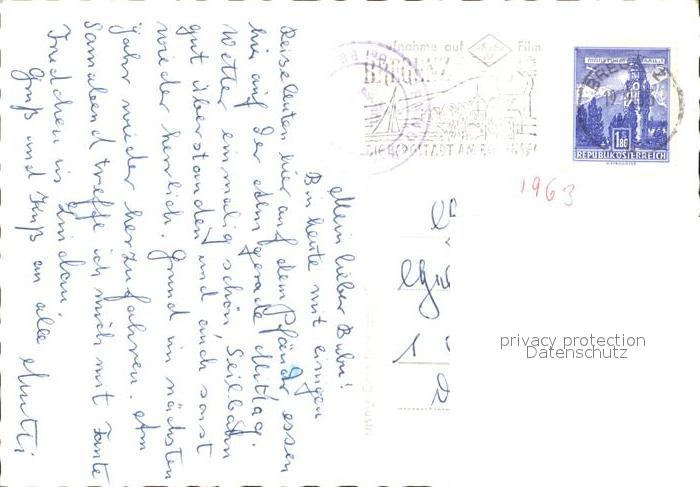 Mein lieber Bubi!
Bin heute mit einigen
Reiseleuten hier auf dem Pfänder, essen
hier auf der Alm gerade Mittag.
Wetter einmalig schön, Seilbahn
gut überstanden und auch sonst
wieder herrlich. Grund im nächsten
Jahr wieder herzufahren. Am
Sonnabend treffe ich mich mit Tante
Friedchen in Lindau.
Gruß und Kuß an alle Mutti
Aufnahme auf Film
BREGENZ
BREGENZ
1.80
REPUBLIK ÖSTERREICH
1963
privacy protection
Datenschutz